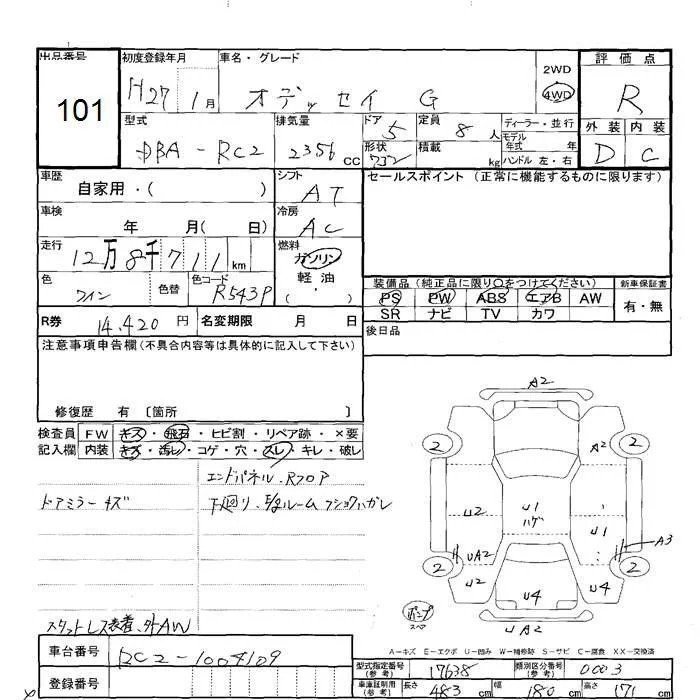 出品番号
101
初度登録年月
H27 1月
車名・グレード
オデッセイ G
2WD
4WD
評価点
R
外装 内装
D C
型式
DBA - RC2
排気量
2356 cc
ドア
5
形状
定員
8 人
積載
kg
ディーラー・並行
モデル年式 年
ハンドル 左・右
車歴
自家用・( )
シフト
AT
セールスポイント (正常に機能するものに限ります)
車検
年 月( 日)
冷房
AC
走行
12万8千711km
燃料
ガソリン
軽油
( ・ )
色
ワイン
色替
色コード
R543P
装備品 (純正品に限り○をつけてください)
新車保証書
PS PW ABS エアB AW
SR ナビ TV カワ
有・無
R券
14,420 円
名変期限 月 日
後日品
注意事項申告欄(不具合内容等は具体的に記入して下さい)
修復歴 有 〔箇所 〕
検査員記入欄
FW キズ・飛石・ヒビ割・リペア跡・×要
内装 キズ・汚レ・コゲ・穴・スレ・キレ・破レ
エンドパネル、Rフロア
ドアミラーキズ
下廻り、E/gルーム フショクハガレ
スタットレス装着、外AW
A2
2
2
A2
U2
U1
ハゲ
U1
A3
UA2
2
2
U2
U4
U4
ポンプ
スペア
UA2
A-キズ E-エクボ U-凹み W-補修跡 S-サビ C-腐食 XX-交換済
車台番号
RC2-1004109
登録番号
型式指定番号(参考)
17638
類別区分番号(参考)
0003
車庫証明用(参考)
長さ 483 cm
幅 180 cm
高さ 171 cm